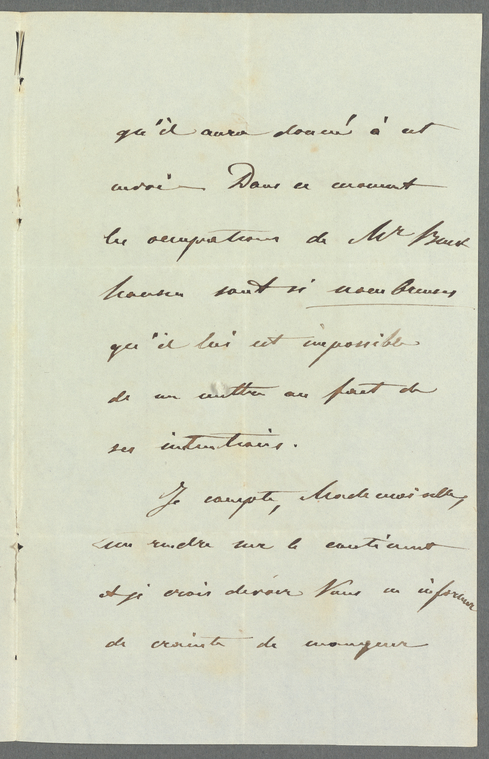 qu'il aura donné à cet
envoi — Dans ce moment
les occupations de Mr Burk
hausen sont si nombreuses
qu'il lui est impossible
de me mettre au fait de
ses intentions.
Je compte, Mademoiselle,
me rendre sur le continent
et je crois devoir Vous en informer
de crainte de manquer